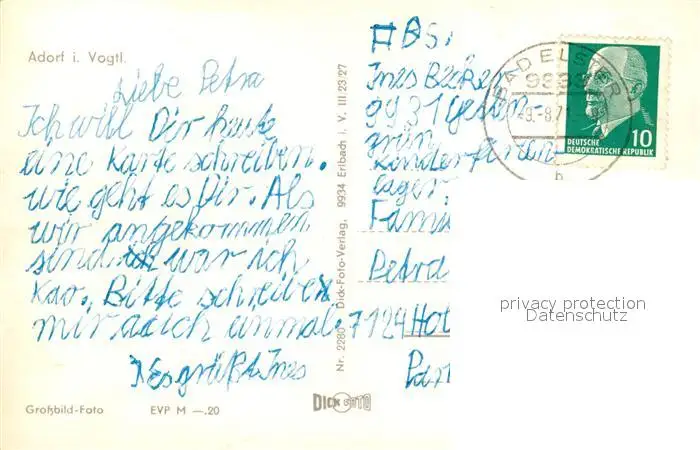 Adorf i. Vogtl.
Liebe Petra
Ich will Dir heute
eine Karte schreiben.
wie geht es Dir. Als
wir angekommen
sind war ich
Kao. Bitte schreibe
mir auch einmal.
Es grüßt Ines
Großbild-Foto EVP M —.20
Nr. 2280 Dick-Foto-Verlag, 9934 Erlbach i. V. III 23 27
DICK FOTO
ABS.
Ines Becker
9931 Gesen-
grün
Kinderferien-
lager.
Famil
Petra
7124 Hol
Par
BAD ELSTER
9933
-9.-8.71
b
10
DEUTSCHE
DEMOKRATISCHE REPUBLIK
privacy protection
Datenschutz